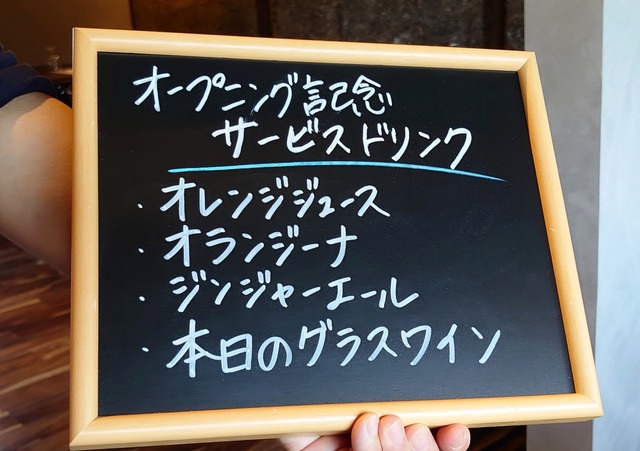 オープニング記念
サービスドリンク
・オレンジジュース
・オランジーナ
・ジンジャーエール
・本日のグラスワイン